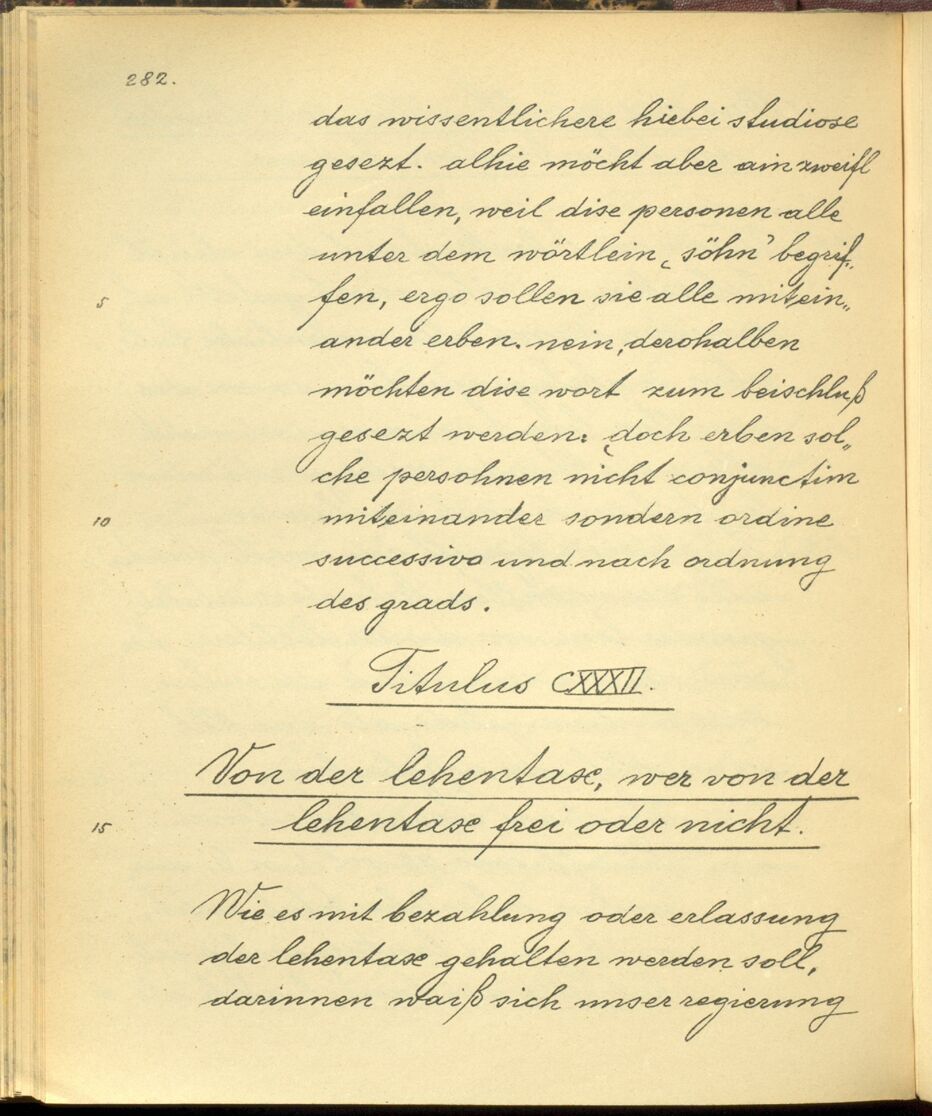 282.
das wissentlichere hiebei studiose
gesezt. alhie möcht aber ain zweifl
einfallen, weil dise personen alle
unter dem wörtlein ‚söhn’ begrif„
5 fen, ergo sollen sie alle mitein„
ander erben. nein, derohalben
möchten dise wort zum beischluß
gesezt werden: ‚doch erben sol„
che persohnen nicht conjunctim
10 miteinander sondern ordine
successivo und nach ordnung
des grads.
Titulus CXXXII.
Von der lehentaxe, wer von der
15 lehentaxe frei oder nicht.
Wie es mit bezahlung oder erlassung
der lehentaxe gehalten werden soll,
darinnen waiß sich unser regierung